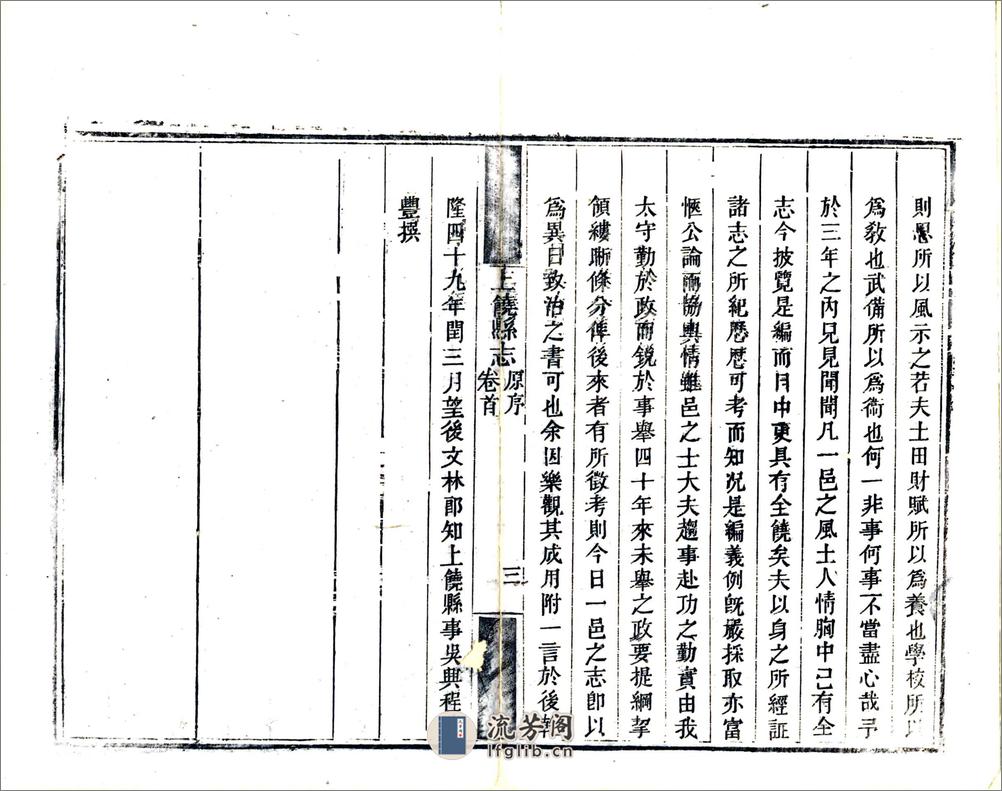 則思所以風示之若夫土田財賦所以爲養也學校所以
爲教也武備所以爲衛也何一非事何事不當盡心哉予
於三年之內見見聞聞凡一邑之風土人情胸中已有全
志今披覽是編而目中更具有全饒矣夫以身之所經証
諸志之所紀歷歷可考而知况是編義例旣嚴採取亦富
愜公論而協輿情雖邑之士大夫趨事赴功之勤實由我
太守勤於政而銳於事舉四十年來未舉之政要提綱挈
領縷晰條分俾後來者有所徵考則今日一邑之志卽以
爲異日致治之書可也余因樂觀其成用附一言於後
上饒縣志
原序
卷首
三
隆四十九年閏三月望後文林郎知上饒縣事吳興程
豐撰
流芳閣
lfglib.cn